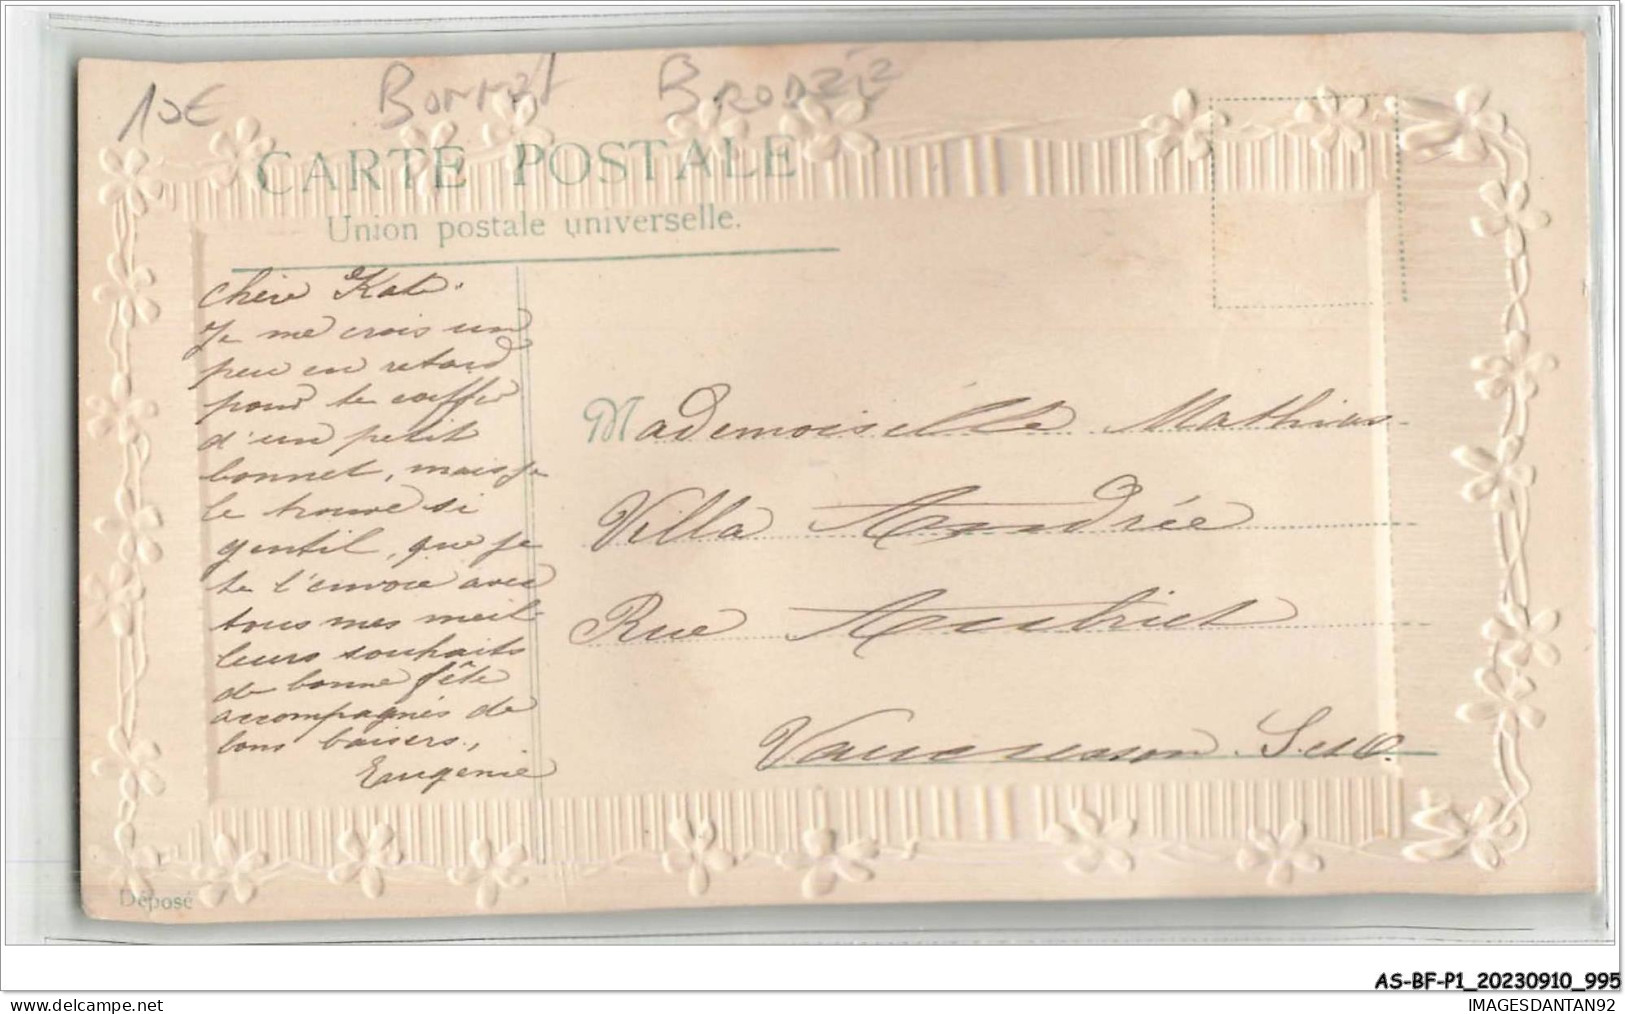 10€ BONNET BRODÉE
CARTE POSTALE
Union postale universelle.
Chère Kate.
Je me crois un
peu en retard
pour te coiffer
d'un petit
bonnet, mais je
le trouve si
gentil, que je
te l'envoie avec
tous mes meil-
leurs souhaits
de bonne fête
accompagnés de
bons baisers,
Eugenie
Mademoiselle Mathias
Villa Andrée
Rue Aubriet
Vaucresson. S. et O.
Déposé
AS-BF-P1_20230910_995
delcampe.net
IMAGESDANTAN92